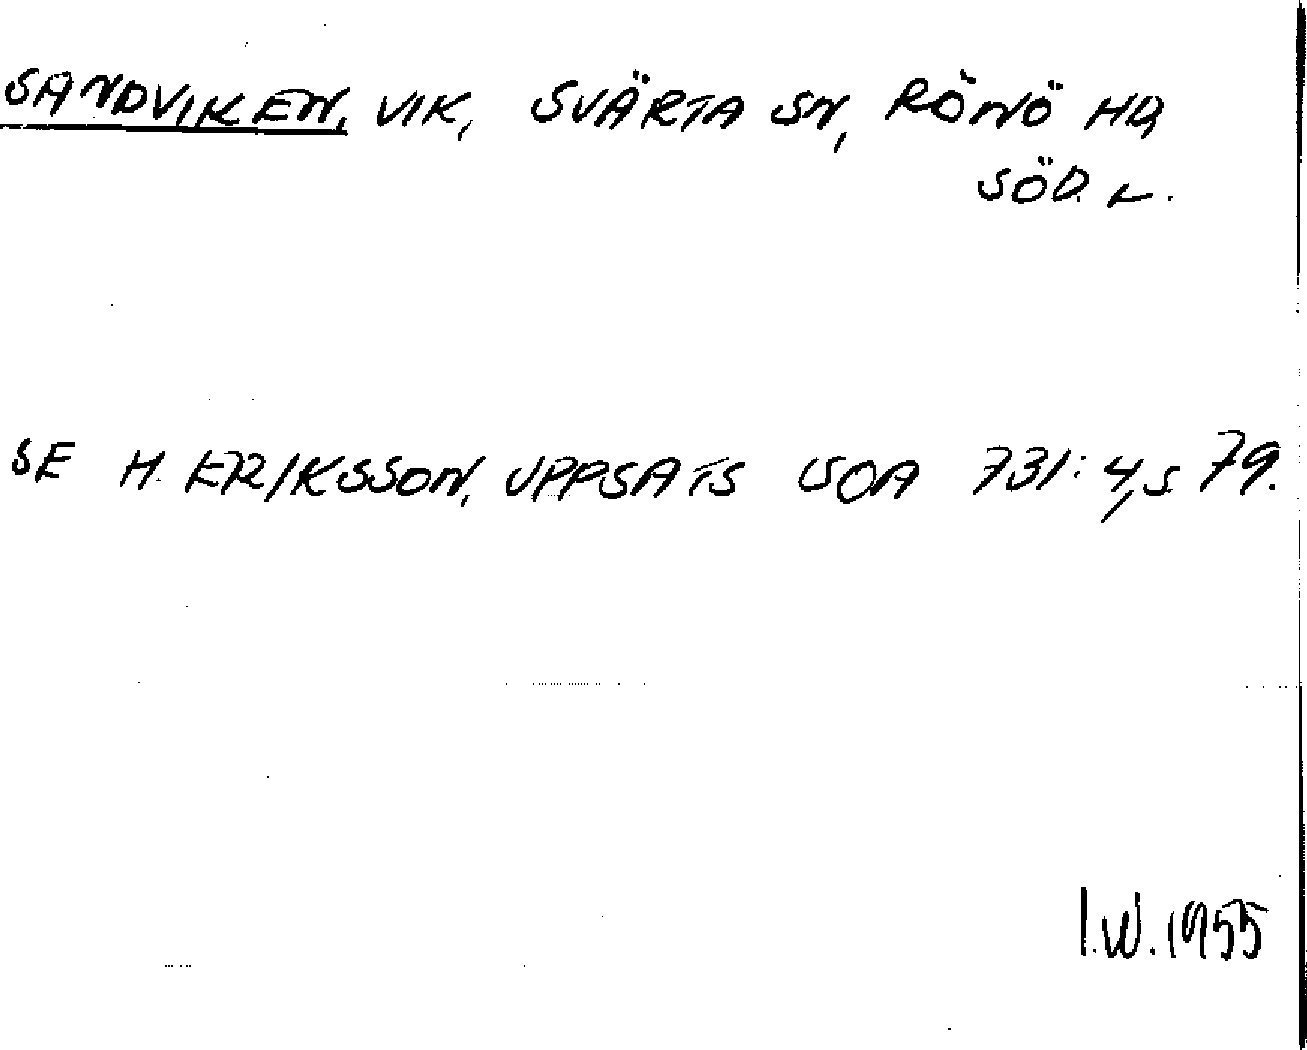 SANDVIKEN, VIK, SVÄRTA SN, RÖNÖ HD,
SÖD. L.
SE H. ERIKSSON, UPPSATS SOA 731:4, S 79.
I.W. 1955